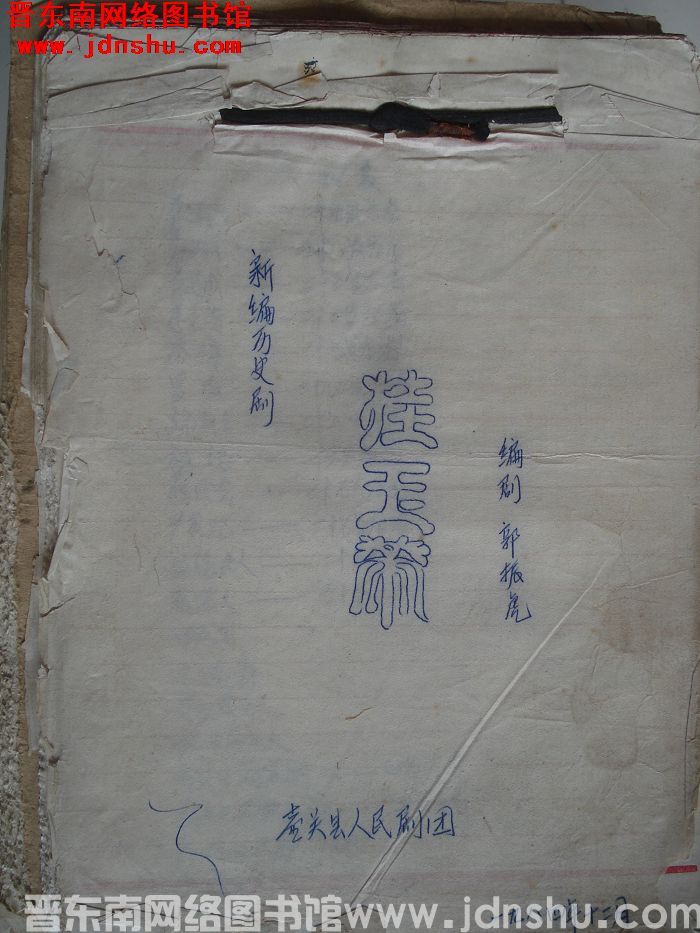 晋东南网络图书馆
www.jdnshu.com
新编历史剧
挂玉带
编剧 郭振虎
壶关县人民剧团
一九八四年十二月
晋东南网络图书馆www.jdnshu.com